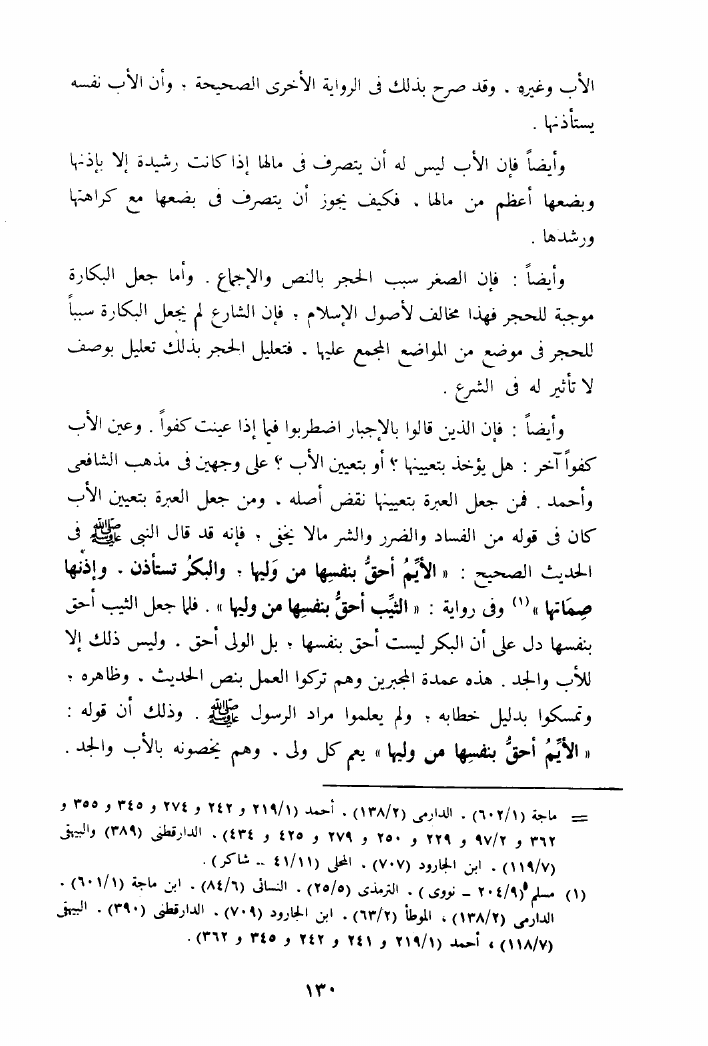 الأب وغيره . وقد صرح بذلك فى الرواية الأخرى الصحيحة ؛ وأن الأب نفسه
يستأذنها .
وأيضاً فإن الأب ليس له أن يتصرف فى مالها إذا كانت رشيدة إلا بإذنها
وبضعها أعظم من مالها . فكيف يجوز أن يتصرف فى بضعها مع كراهتها
ورشدها .
وأيضاً : فإن الصغر سبب الحجر بالنص والإجماع . وأما جعل البكارة
موجبة للحجر فهذا مخالف لأصول الإسلام ؛ فإن الشارع لم يجعل البكارة سبباً
للحجر فى موضع من المواضع المجمع عليها . فتعليل الحجر بذلك تعليل بوصف
لا تأثير له فى الشرع .
وأيضاً : فإن الذين قالوا بالإجبار اضطربوا فيما إذا عينت كفواً . وعين الأب
كفواً آخر : هل يؤخذ بتعيينها ؟ أو بتعيين الأب ؟ على وجهين فى مذهب الشافعى
وأحمد . فمن جعل العبرة بتعيينها نقض أصله . ومن جعل العبرة بتعيين الأب
كان فى قوله من الفساد والضرر والشر مالا يخفى ؛ فإنه قد قال النبى ﷺ فى
الحديث الصحيح : « الأيِّمُ أحقُّ بنفسها من وليها ؛ والبكرُ تستأذن . وإذنُها
صِمَاتها »(١) وفى رواية : « الثيِّب أحقُّ بنفسِها من وليها » . فلما جعل الثيب أحق
بنفسها دل على أن البكر ليست أحق بنفسها ؛ بل الولى أحق . وليس ذلك إلا
للأب والجد . هذه عمدة المجبرين وهم تركوا العمل بنص الحديث . وظاهره ؛
وتمسكوا بدليل خطابه ؛ ولم يعلموا مراد الرسول ﷺ . وذلك أن قوله :
« الأيِّمُ أحقُّ بنفسِها من وليها » يعم كل ولى . وهم يخصونه بالأب والجد .
= ماجة (٦٠٢/١) . الدارمى (١٣٨/٢) . أحمد (٢١٩/١ و ٢٤٢ و ٢٧٤ و ٣٤٥ و ٣٥٥ و
٣٦٢ و ٩٧/٢ و ٢٢٩ و ٢٥٠ و ٢٧٩ و ٤٢٥ و ٤٣٤) . الدارقطنى (٣٨٩) والبيهقى
(١١٩/٧) . ابن الجارود (٧٠٧) . المحلى (٤١/١١ – شاكر) .
(١) مسلم (٢٠٤/٩ – نووى) . الترمذى (٢٥/٥) . النسائى (٨٤/٦) . ابن ماجة (٦٠١/١) .
الدارمى (١٣٨/٢) ، الموطأ (٦٣/٢) . ابن الجارود (٧٠٩) . الدارقطنى (٣٩٠) . البيهقى
(١١٨/٧) ، أحمد (٢١٩/١ و ٢٤١ و ٢٤٢ و ٣٤٥ و ٣٦٢) .
١٣٠